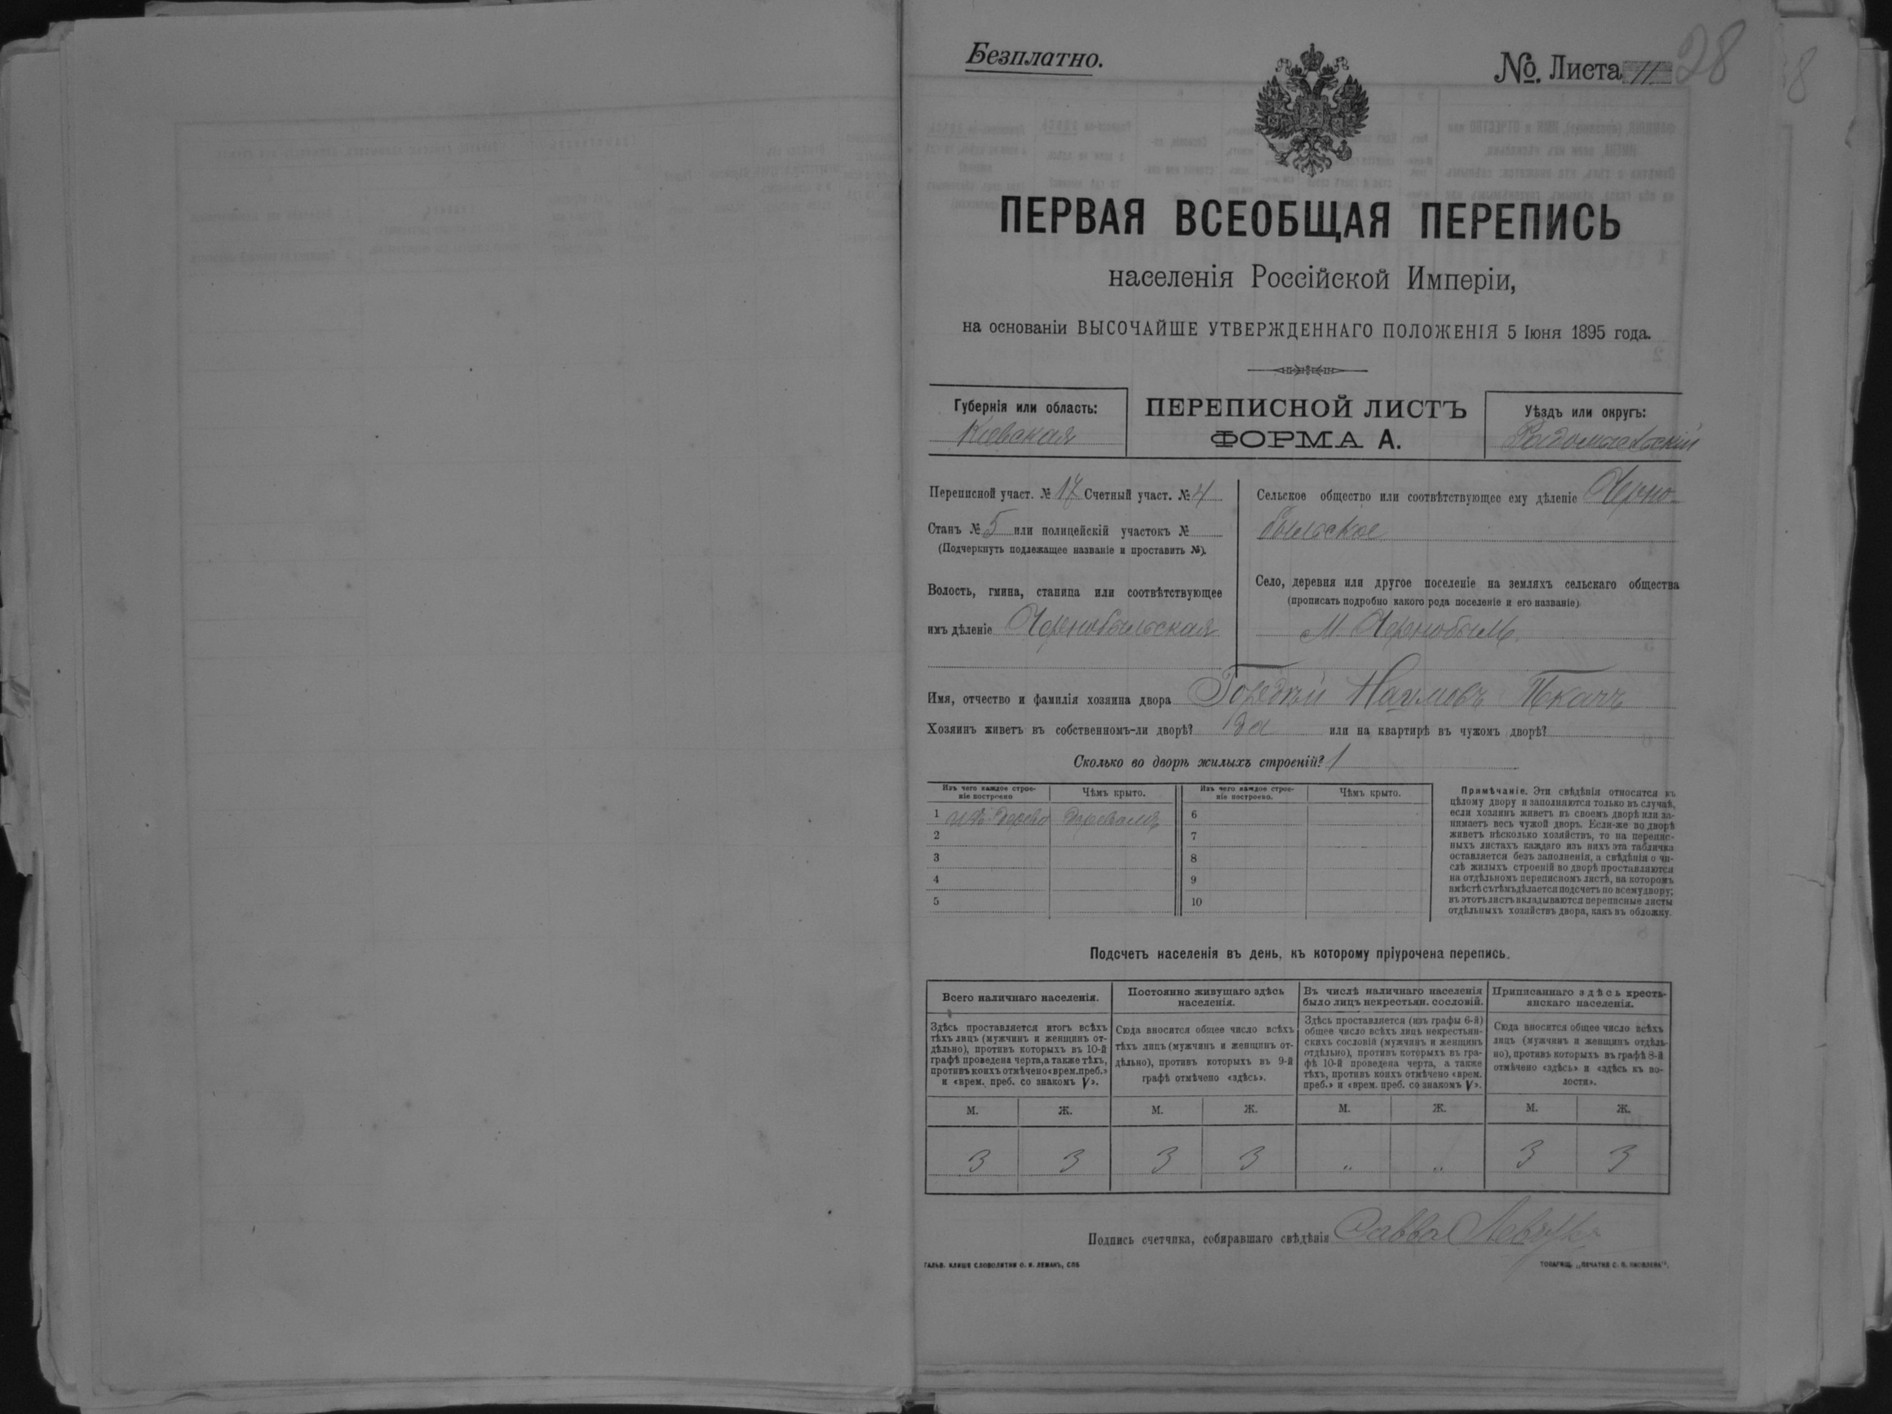 Безплатно.
№. Листа 11
28
8
ПЕРВАЯ ВСЕОБЩАЯ ПЕРЕПИСЬ
населенія Россійской Имперіи,
на основаніи ВЫСОЧАЙШЕ УТВЕРЖДЕННАГО ПОЛОЖЕНІЯ 5 Іюня 1895 года.
Губернія или область:
Кіевская
ПЕРЕПИСНОЙ ЛИСТЪ
ФОРМА А.
Уѣздъ или округъ:
Радомысльскій
Переписной участ. № 17 Счетный участ. № 4
Станъ № 5 или полицейскій участокъ №
(Подчеркнуть подлежащее названіе и проставить №).
Волость, гмина, станица или соотвѣтствующее
имъ дѣленіе Чернобыльская
Сельское общество или соотвѣтствующее ему дѣленіе Черно-
быльское
Село, деревня или другое поселеніе на земляхъ сельскаго общества
(прописать подробно какого рода поселеніе и его названіе)
М. Чернобыль
Имя, отчество и фамилія хозяина двора Наумовъ Ткачъ
Хозяинъ живетъ въ собственномъ-ли дворѣ? Да или на квартирѣ въ чужомъ дворѣ?
Сколько во дворѣ жилыхъ строеній? 1
Изъ чего каждое строе-
ніе построено
Чѣмъ крыто.
Изъ чего каждое строе-
ніе построено.
Чѣмъ крыто.
1 изъ дерева
2
3
4
5
6
7
8
9
10
Примѣчаніе. Эти свѣдѣнія относятся къ
цѣлому двору и заполняются только въ случаѣ,
если хозяинъ живетъ въ своемъ дворѣ или за-
нимаетъ весь чужой дворъ. Если-же во дворѣ
живетъ нѣсколько хозяйствъ, то на перепис-
ныхъ листахъ каждаго изъ нихъ эта табличка
оставляется безъ заполненія, а свѣдѣнія о чи-
слѣ жилыхъ строеній во дворѣ проставляются
на отдѣльномъ переписномъ листѣ, на которомъ
вмѣстѣ съ тѣмъ дѣлается подсчетъ по всему двору;
въ этотъ листъ вкладываются переписные листы
отдѣльныхъ хозяйствъ двора, какъ въ обложку.
Подсчетъ населенія въ день, къ которому пріурочена перепись.
Всего наличнаго населенія.
Здѣсь проставляется итогъ всѣхъ
тѣхъ лицъ (мужчинъ и женщинъ от-
дѣльно), противъ которыхъ въ 10-й
графѣ проведена черта, а также тѣхъ,
противъ коихъ отмѣчено «врем. преб.»
и «врем. преб. со знакомъ V».
Постоянно живущаго здѣсь
населенія.
Сюда вносятся общее число всѣхъ
тѣхъ лицъ (мужчинъ и женщинъ от-
дѣльно), противъ которыхъ въ 9-й
графѣ отмѣчено «здѣсь».
Въ числѣ наличнаго населенія
было лицъ некрестьян. сословій.
Здѣсь проставляется (изъ графы 6-й)
общее число всѣхъ лицъ некрестьян-
скихъ сословій (мужчинъ и женщинъ
отдѣльно), противъ которыхъ въ гра-
фѣ 10-й проведена черта, а также
тѣхъ, противъ коихъ отмѣчено «врем.
преб.» и «врем. преб. со знакомъ V».
Приписаннаго здѣсь кресть-
янскаго населенія.
Сюда вносятся общее число всѣхъ
лицъ (мужчинъ и женщинъ отдѣль-
но), противъ которыхъ въ графѣ 8-й
отмѣчено «здѣсь» и «здѣсь къ во-
лости».
М. Ж. М. Ж. М. Ж. М. Ж.
3 3 3 3 „ „ 3 3
Подпись счетчика, собиравшаго свѣдѣнія Савва
ГАЛЬВ. КЛИШЕ СЛОВОЛИТНИ О. И. ЛЕМАНЪ, СПБ
ТОВАРИЩ. „ПЕЧАТНЯ С. П. ЯКОВЛЕВА“.